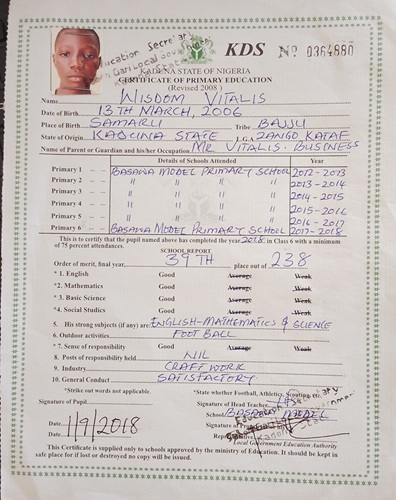 KDS No 0364880
KADUNA STATE OF NIGERIA
CERTIFICATE OF PRIMARY EDUCATION
(Revised 2008)
Name WISDOM VITALIS
Date of Birth 13TH MARCH, 2006
Place of Birth SAMARU Tribe BAJJU
State of Origin KADUNA STATE L.G.A ZANGO KATAF
Name of Parent or Guardian and his/her Occupation MR VITALIS. BUSINESS
Details of Schools Attended Year
Primary 1 BASAWA MODEL PRIMARY SCHOOL 2012-2013
Primary 2 " " " " 2013-2014
Primary 3 " " " " 2014-2015
Primary 4 " " " " 2015-2016
Primary 5 " " " " 2016-2017
Primary 6 BASAWA MODEL PRIMARY SCHOOL 2017-2018
This is to certify that the pupil named above has completed the year 2018 in Class 6 with a minimum
of 75 percent attendances.
SCHOOL REPORT
Order of merit, final year, 39TH place out of 238
* 1. English Good Average Weak
*2. Mathematics Good Average Weak
* 3. Basic Science Good Average Weak
*4. Social Studies Good Average Weak
5. His strong subjects (if any) are: ENGLISH-MATHEMATICS & SCIENCE
6. Outdoor activities FOOT BALL
* 7. Sense of responsibility Good Average Weak
8. Posts of responsibility held NIL
9. Industry CRAFT WORK
10. General Conduct SATISFACTORY
*Strike out words not applicable. *State whether Football, Athletics, Scouting etc.
Signature of Pupil Signature of Head Teacher
School BASAWA MODEL
Date 1/9/2018 Signature of
Date Local Government Education Authority
This Certificate is supplied only to schools approved by the ministry of Education. It should be kept in
safe place for if lost or destroyed no copy will be issued.